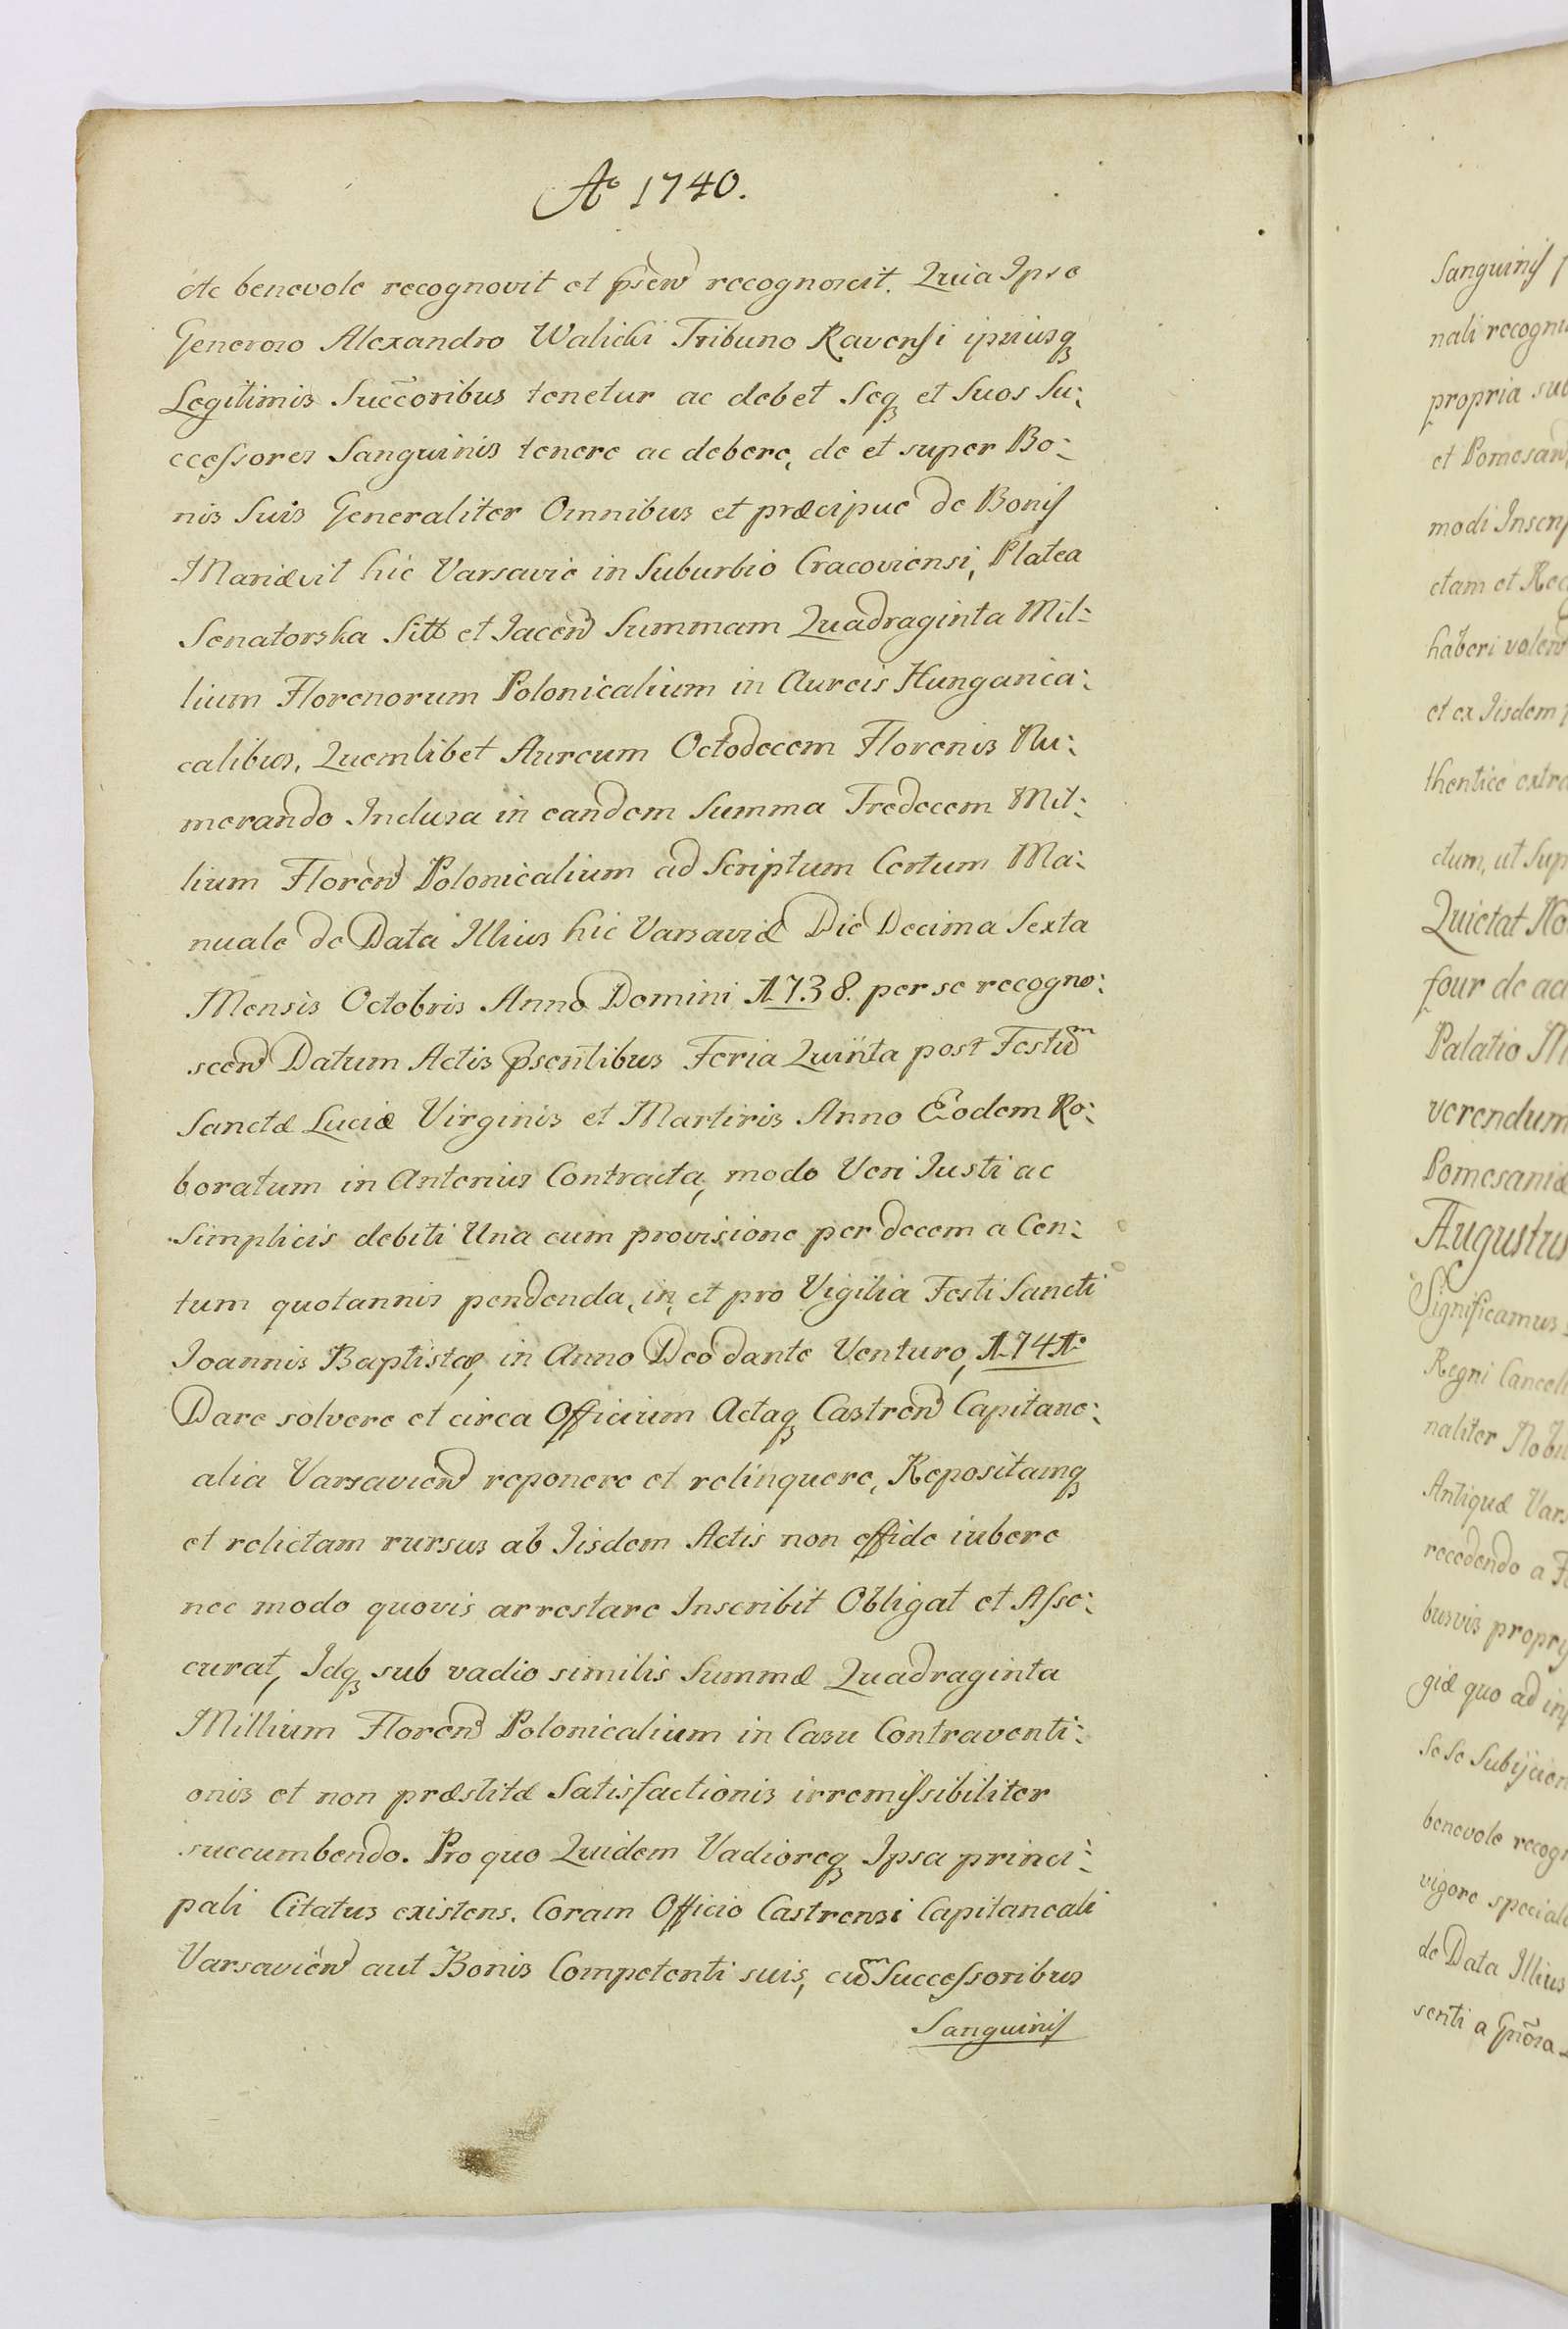 Aº 1740.
etc benevole recognovit et p̃sen̄ recognoscit. Quia Ipse
Generoso Alexandro Walicki Tribuno Ravensi ipsiusq
Legitimis Succ̃oribus tenetur ac debet Seq et Suos Su:
ccessores Sanguinis tenere ac debere, de et super Bo:
nis Suis Generaliter Omnibus et præcipue de Bonis
Mariævit hic Varsavie in Suburbio Cracoviensi, Platea
Senatorska Sitt et Jacen̄ Summam Quadraginta Mil:
lium Florenorum Polonicalium in Aureis Hungarica:
calibus, Quemlibet Aureum Octodecem Florenis Nu:
merando Inclusa in eandem Summa Tredecem Mil:
lium Floren̄ Polonicalium ad Scriptum Certum Ma:
nuale de Data Illius hic Varsaviæ Die Decima Sexta
Mensis Octobris Anno Domini 1738. per se recogno:
scen̄ Datum Actis p̃sentibus Feria Quinta post Festu̅m
Sanctæ Luciæ Virginis et Martiris Anno Eodem Ro:
boratum in Anterius Contracta, modo Veri Justi ac
Simplicis debiti Una cum provisione per decem a Cen:
tum quotannis pendenda, in, et pro Vigilia Festi Sancti
Joannis Baptistæ, in Anno Deo dante Venturo, 1741º
Dare solvere et circa Officium Actaq Castren̄ Capitane:
alia Varsavien̄ reponere et relinquere, Repositamq
et relictam rursus ab Iisdem Actis non effide iubere
nec modo quovis arrestare Inscribit Obligat et Asse:
curat, Idq sub vadio similis Summæ Quadraginta
Millium Floren̄ Polonicalium in Casu Contraventi:
onis et non præstitæ Satisfactionis irremissibiliter
succumbendo. Pro quo Quidem Vadioreq Ipsa princi:
pali Citatus existens. Coram Officio Castrensi Capitaneali
Varsavien̄ aut Bonis Competenti suis, cu̅m Successoribus
Sanguinis
Sanguinis
nali recogn
propria sub
et Pomesan
modi Inscrip
ctam et Rec
haberi volen̄
et ex Iisdem
thentice extra
ctum, ut Sup
Quietat No
four de ac
Palatio M
verendum
Pomesaniæ
Augustus
Significamus
Regni Cancell
naliter Nobil
Antiquæ Vars
recedendo a F
busvis propry
giæ quo ad in
se se Subijcien
benevole recog
vigore speciale
de Data Illius
senti a Gnõsa